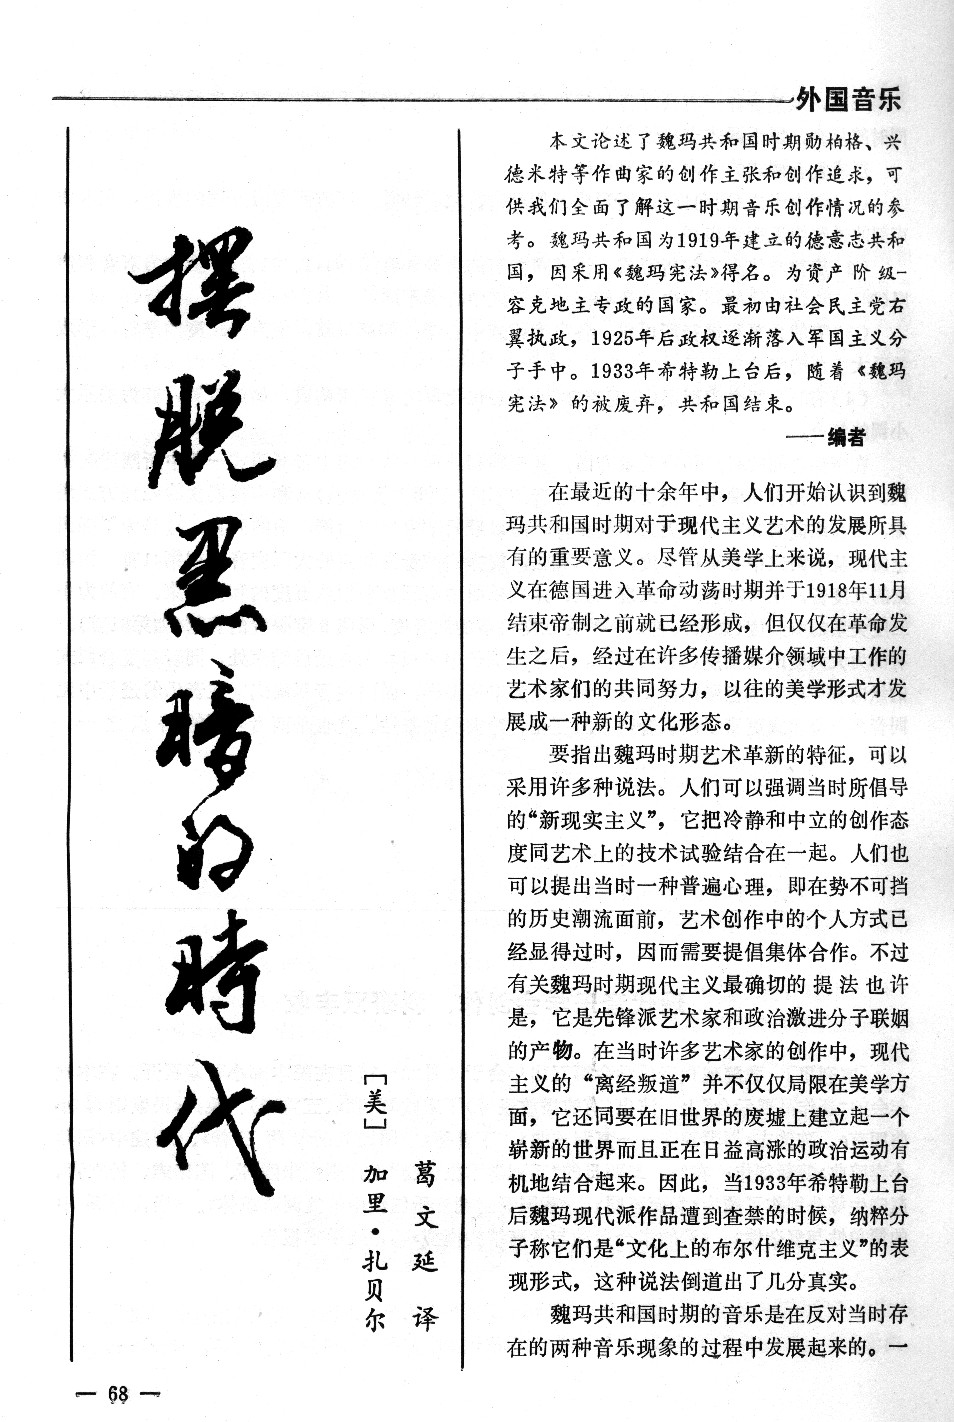 外国音乐
摆脱黑暗的時代
[美] 加里·扎贝尔
葛文延 译
本文论述了魏玛共和国时期勋柏格、兴
德米特等作曲家的创作主张和创作追求，可
供我们全面了解这一时期音乐创作情况的参
考。魏玛共和国为1919年建立的德意志共和
国，因采用《魏玛宪法》得名。为资产阶级-
容克地主专政的国家。最初由社会民主党右
翼执政，1925年后政权逐渐落入军国主义分
子手中。1933年希特勒上台后，随着《魏玛
宪法》的被废弃，共和国结束。
——编者
在最近的十余年中，人们开始认识到魏
玛共和国时期对于现代主义艺术的发展所具
有的重要意义。尽管从美学上来说，现代主
义在德国进入革命动荡时期并于1918年11月
结束帝制之前就已经形成，但仅仅在革命发
生之后，经过在许多传播媒介领域中工作的
艺术家们的共同努力，以往的美学形式才发
展成一种新的文化形态。
要指出魏玛时期艺术革新的特征，可以
采用许多种说法。人们可以强调当时所倡导
的“新现实主义”，它把冷静和中立的创作态
度同艺术上的技术试验结合在一起。人们也
可以提出当时一种普遍心理，即在势不可挡
的历史潮流面前，艺术创作中的个人方式已
经显得过时，因而需要提倡集体合作。不过
有关魏玛时期现代主义最确切的提法也许
是，它是先锋派艺术家和政治激进分子联姻
的产物。在当时许多艺术家的创作中，现代
主义的“离经叛道”并不仅仅局限在美学方
面，它还同要在旧世界的废墟上建立起一个
崭新的世界而且正在日益高涨的政治运动有
机地结合起来。因此，当1933年希特勒上台
后魏玛现代派作品遭到查禁的时候，纳粹分
子称它们是“文化上的布尔什维克主义”的表
现形式，这种说法倒道出了几分真实。
魏玛共和国时期的音乐是在反对当时存
在的两种音乐现象的过程中发展起来的。一
— 68 —